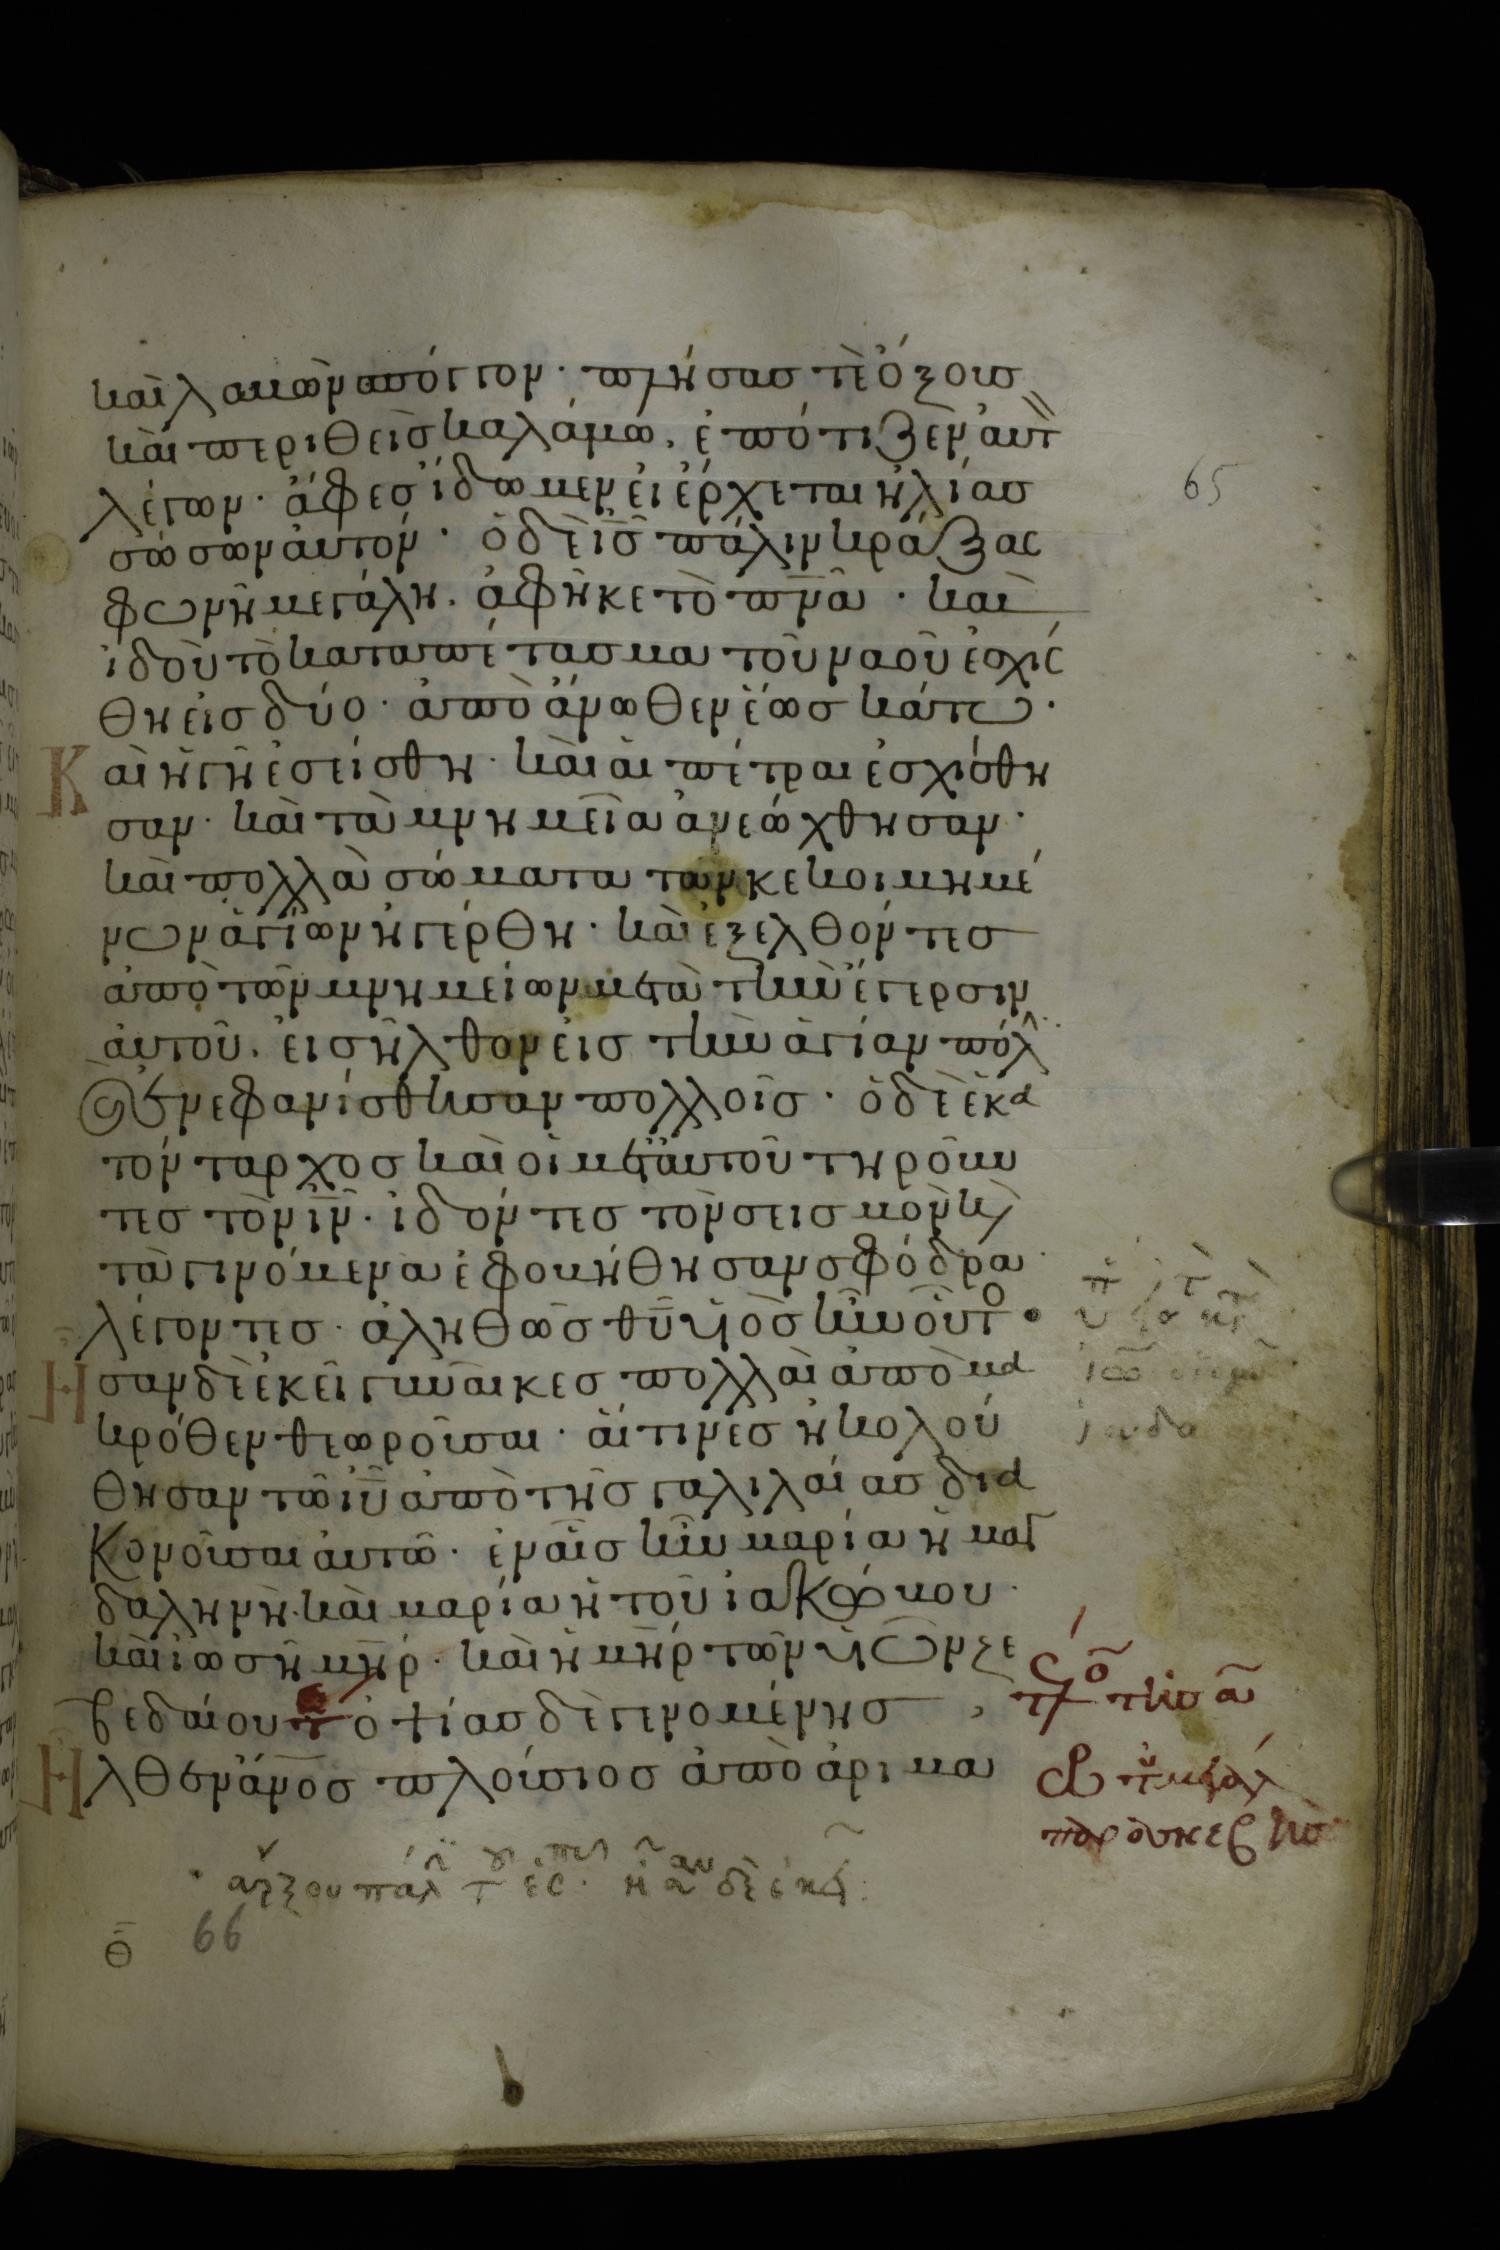 καὶ λαβὼν σπόγγον· πλήσας τὲ ὄξους
καὶ περιθεὶς καλάμω, ἐπότιζεν ἀυτ
λέγων· ἄφες ἴδωμεν ἐι ἔρχεται ἠλίας
65
σώσων ἀυτόν· ὁ δὲ ις̅ πάλιν κράξας
φωνῆ μεγάλη. ἀφῆκε τὸ πν̅α· καὶ
ἰδοὺ τὸ καταπέτασμα τοῦ ναοῦ ἐσχίσ
θη εις δύο· ἀπὸ ἄνωθεν ἕως κάτω·
Και ἡ γῆ ἐσείσθη· καὶ αἱ πέτραι ἐσχίσθη
σαν· καὶ τὰ μνημεῖα ἀνεώχθησαν·
καὶ πολλὰ σώματα τῶν κεκοιμημέ
νων ἁγίων ἠγέρθη· καὶ ἐξελθόντες
ἀπὸ τῶν μνημείων μετὰ τὴν ἔγερσιν
ἀυτοῦ. ἐισῆλθον ἐις τὴν ἁγίαν πόλ
καὶ ἐνεφανίσθησαν πολλοῖς· ὁ δὲ ἑκα
τόνταρχος καὶ οἱ μετ ἀυτοῦ τηροῦν
τες τὸν ιν̅· ἰδόντες τὸν σεισμὸν κὶ
τὰ γινόμενα ἐφοβήθησαν σφόδρα
λέγοντες· ἀληθῶς θυ̅ υἱὸς ἦν οὗτο·
Ησαν δὲ ἐκεῖ γυναῖκες πολλαὶ ἀπὸ μα
κρόθεν θεωροῦσαι· ἅιτινες ἠκολού
ιουδα
θησαν τῶ ιυ̅ ἀπὸ τῆς γαλιλαίας δια
κονοῦσαι ἀυτῶ· ἐν αἷς ἦν μαρία ἡ μαγ
δαληνὴ· καὶ μαρία ἡ τοῦ ἰακώβου·
καὶ ἰωσῆ μη̅ρ· καὶ ἡ μη̅ρ τῶν υἱῶν ζε
βεδαίου τ ὀψίας δὲ γενομένης,
Ηλθεν ἄνος πλούσιος ἀπὸ ἀριμα
θ̅
66